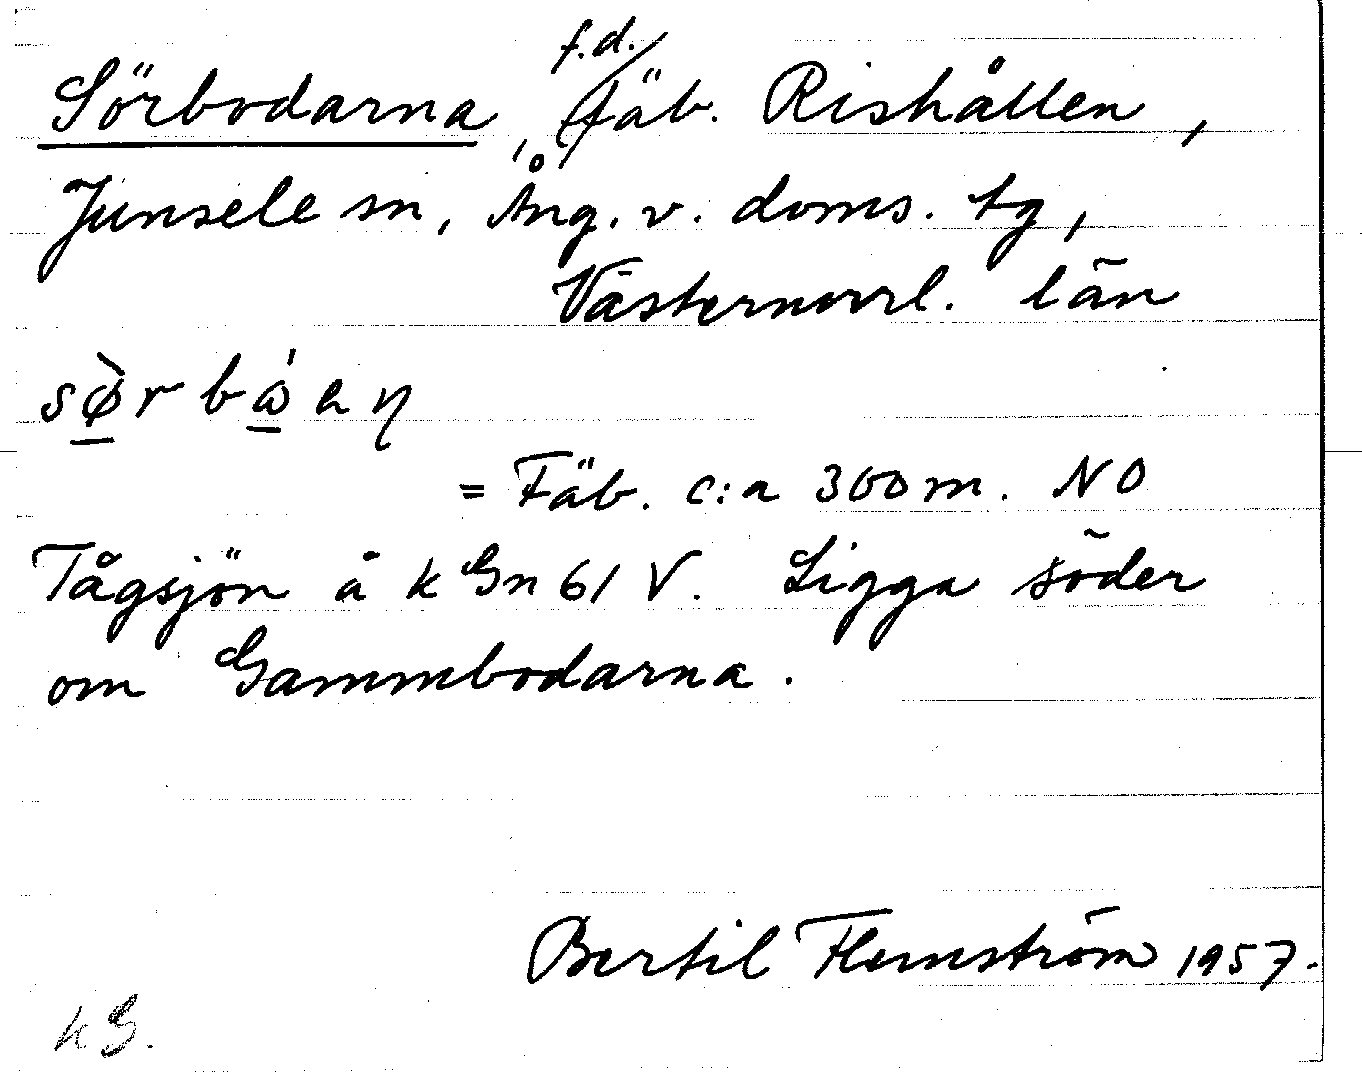 Sörbodarna, f.d. fäb. Rishållen,
Junsele sn, Ång. v. doms. tg,
Västernorrl. län
sø̀rbώaη
= Fäb. c:a 300 m. NO
Tågsjön å k Gn 61 V. Ligga söder
om Gammbodarna.
Bertil Flemström 1957.
kG.